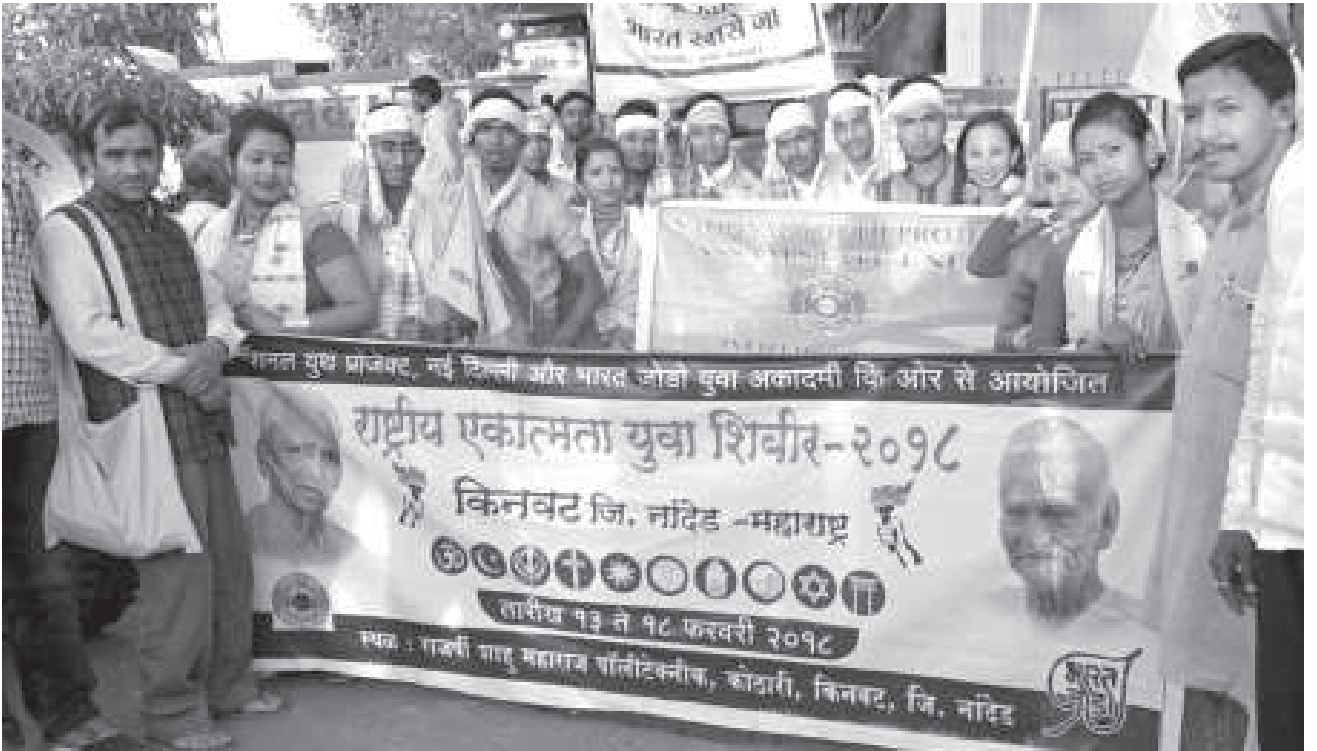 भारत
शनल युथ प्रोजेक्ट, नई दिल्ली और भारत जोडो युवा अकादमी कि ओर से आयोजित
राष्ट्रीय एकात्मता युवा शिबीर-२०१८
किनवट जि. नांदेड -महाराष्ट्र
तारीख १३ ते १८ फरवरी २०१८
स्थळ : राजर्षी शाहु महाराज पॉलीटेक्नीक, कोठारी, किनवट, जि. नांदेड
भारत
जोडो